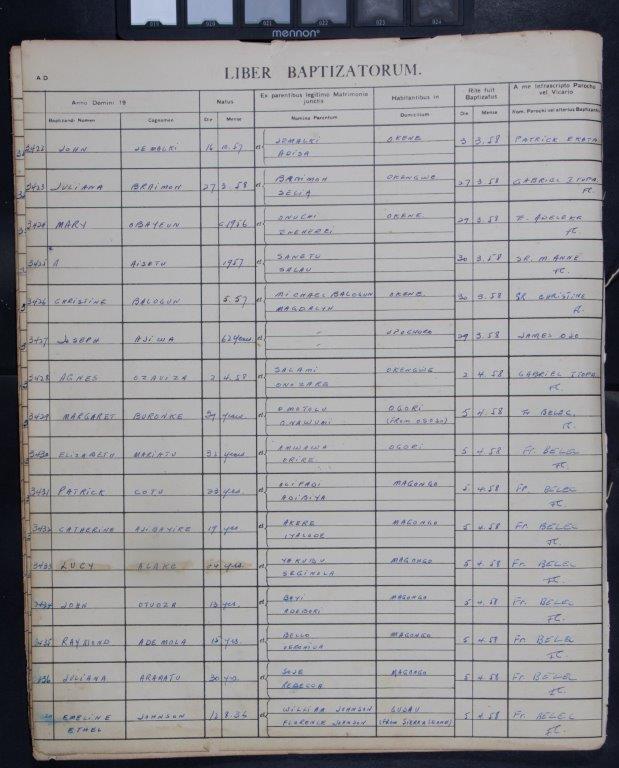 019 020 021 022 023 024
mennon
A D
LIBER BAPTIZATORUM.
Anno Domini 19 Natus Ex parentibus legitimo Matrimonio junctis Habitantibus in Rite fuit Baptizatus A me Infrascripto Parocho vel Vicario
Baptizandi Nomen Cognomen Die Mense Nomina Parentum Domicilium Die Mense Nom. Parochi vel alterius Baptizantis
3422 JOHN JEMALKI 16 10.57 et JEMALKI OKENE 3 3.58 PATRICK EKATA
ADISA
3423 JULIANA BRAIMOH 27 3.58 et BRAIMOH OKENGWE 27 3.58 GABRIEL ITOPA
SELIA
3424 MARY OBAYEUN C1956 et ONUCHI OKENE 29 3.58 F. ADELEKE
3425 A AISETU 1957 et SANETU 30 3.58 SR. M. ANNE
SALAU
3426 CHRISTINE BALOGUN 5.57 et MICHAEL BALOGUN OKENE 30 3.58 SR CHRISTINE
MAGDALYN
3427 JOSEPH AJIWA 62 years et " UPOGHORO 29 3.58 JAMES OJO
"
3428 AGNES OZAVIZA 2 4.58 et SALAMI OKENGWE 2 4.58 GABRIEL ITOPA
ONOZARE
3429 MARGARET BURONKE years et OMOTOLU OGORI 5 4.58 Fr BELEC
(FROM OSOSO)
3430 ELIZABETH MARIATU 32 years et AMWAWA OGORI 5 4.58 Fr. BELEC
ORIRE
3431 PATRICK COTU 23 yrs. et OLIPADI MAGONGO 5 4.58 Fr. BELEC
ADIBIYA
3432 CATHERINE AJIBAYIRE 19 yrs et AKERE MAGONGO 5 4.58 Fr. BELEC
IYALODE
3433 LUCY ALAKE yrs. et YAKUBU MAGONGO 5 4.58 Fr. BELEC
SEGINOLA
3434 JOHN OTUOZA 13 yrs. et BAYI MAGONGO 5 4.58 Fr. BELEC
ADEBORI
3435 RAYMOND ADEMOLA 15 yrs. et BELLO MAGONGO 5 4.58 Fr. BELEC
3436 JULIANA ARAMATU 30 yrs. et SOJE MAGONGO 5 4.58 Fr BELEC
REBECCA
EMELINE JOHNSON 12 8.36 et WILLIAM JOHNSON GUSAU 5 4.58 Fr. BELEC
ETHEL FLORENCE JOHNSON (FROM SIERRA LEONE)